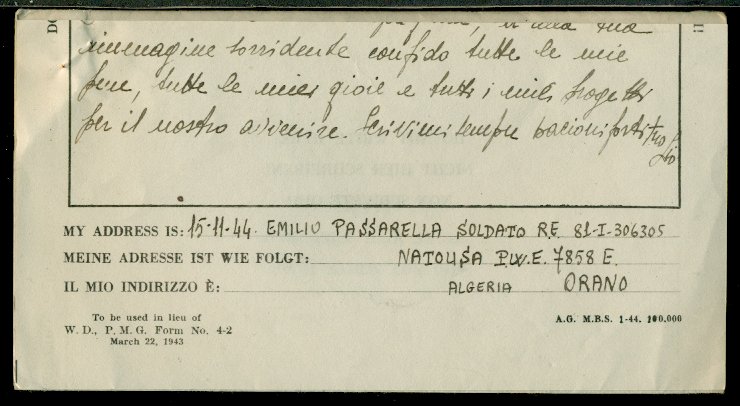 una tua
immagine sorridente confido tutte le mie
pene, tutte le miei gioie e tutti i miei progetti
per il nostro avvenire. Scrivimi sempre bacioni forti tuo
MY ADDRESS IS: 15-11-44. EMILIO PASSARELLA SOLDATO R.E. 81-I-306305
MEINE ADRESSE IST WIE FOLGT: NATOUSA P.W.E. 7858 E.
IL MIO INDIRIZZO È: ALGERIA ORANO
To be used in lieu of
W. D., P. M. G. Form No. 4-2
March 22, 1943
A.G. M.B.S. 1-44. 100.000